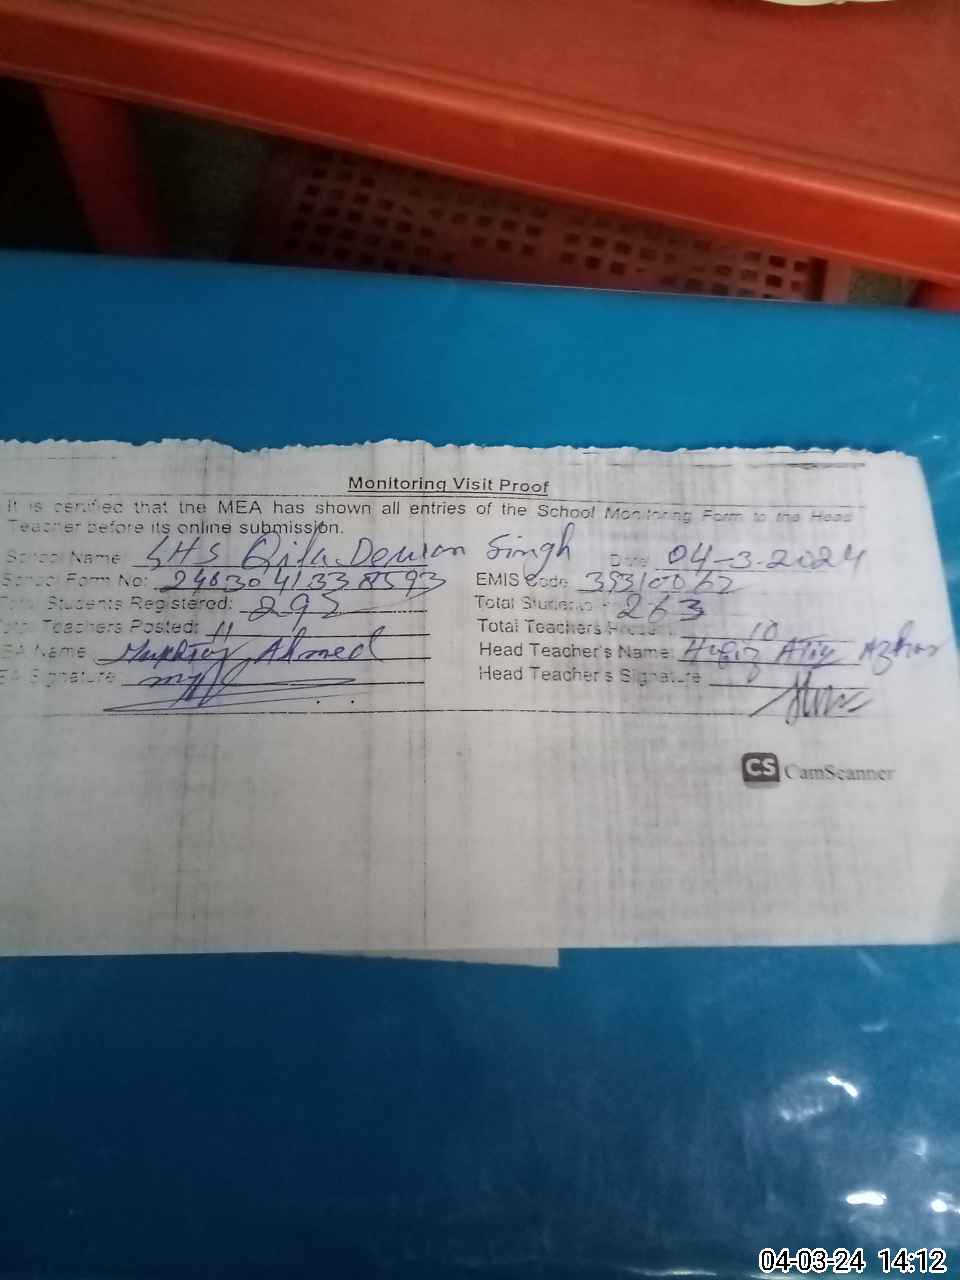 Monitoring Visit Proof
It is certified that the MEA has shown all entries of the School Monitoring Form to the Head
Teacher before its online submission.
School Name GHS Qila Dewan Singh Date 04-3-2024
School Form No: EMIS Code
Total Students Registered: 293 Total Students 263
Total Teachers Posted: 11 Total Teachers Present 10
EA Name Ahmed Head Teacher's Name: Hafiz Atiq Azhar
EA Signature Head Teacher's Signature
CS CamScanner
04-03-24 14:12